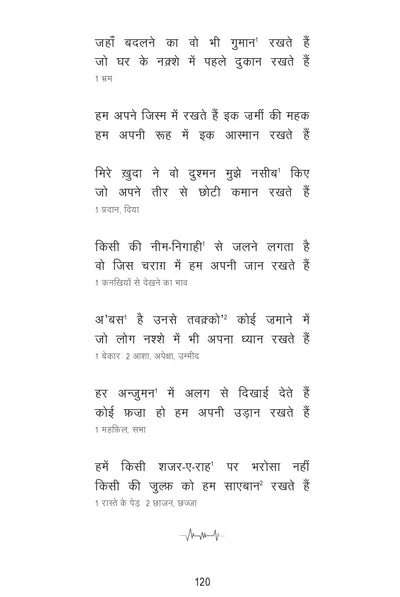 जहाँ बदलने का वो भी गुमान¹ रखते हैं
जो घर के नक़्शे में पहले दुकान रखते हैं
1 भ्रम
हम अपने जिस्म में रखते हैं इक ज़मीं की महक
हम अपनी रूह में इक आस्मान रखते हैं
मिरे ख़ुदा ने वो दुश्मन मुझे नसीब¹ किए
जो अपने तीर से छोटी कमान रखते हैं
1 प्रदान, दिया
किसी की नीम-निगाही¹ से जलने लगता है
वो जिस चराग़ में हम अपनी जान रखते हैं
1 कनखियों से देखने का भाव
अ'बस¹ है उनसे तवक़्को'² कोई ज़माने में
जो लोग नश्शे में भी अपना ध्यान रखते हैं
1 बेकार 2 आशा, अपेक्षा, उम्मीद
हर अन्जुमन¹ में अलग से दिखाई देते हैं
कोई फ़ज़ा हो हम अपनी उड़ान रखते हैं
1 महफ़िल, सभा
हमें किसी शजर-ए-राह¹ पर भरोसा नहीं
किसी की ज़ुल्फ़ को हम साएबान² रखते हैं
1 रास्ते के पेड़ 2 छाजन, छज्जा
120